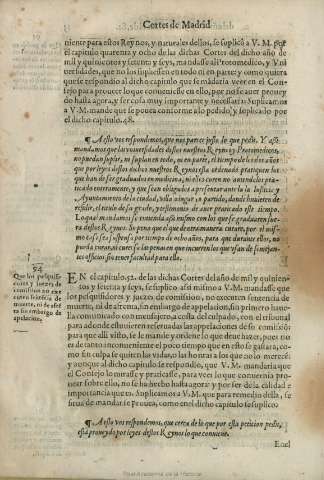 Cortes de Madrid
niente para estos Reynos, y naturales dellos, se suplicó a V. M. por
el capitulo quarenta y ocho de las dichas Cortes del dicho año de
mil y quinientos y setenta y seys, mandasse al Protomedico, y Vni
uersidades, que no los supliessen en todo ni en parte; y como quiera
que se respondio al dicho capitulo que se mádaria veer en el Con-
sejo para proueer lo que conuiniesse en ello, pero no se auer prouey
do hasta agora, y ser cosa muy importante y necessaria: Suplicamos
a V. M. mande que se prouea conforme a lo pedido, y suplicado por
el dicho capitulo. 48.
¶ A esto vos respondemos, que nos parece justo lo que pedis. Y assi
mandamos que las vniuersidades destos nuestros Reynos y Protomedicos,
no puedan suplir, ni suplan en todo, ni en parte, el tiempo de los dos años
que por leyes destos dichos nuestros Reynos esta ordenado pratiquen los
que han de ser graduados en medicina, si no les consta no auer los pra-
ticado enteramente, y que sean obligados a presentar ante la Iusticia y
Ayuntamiento de la ciudad, villa o lugar y partido, donde huuieren de
residir, el titulo de su grado, y testimonio de auer praticado este tiempo.
Lo qual mandamos se entienda assi mismo con los que se graduaren fue-
ra destos Reynos. So pena que el que de otra manera curare, por el mis-
mo caso sea suspenso por tiempo de ocho años, para que durante ellos, no
pueda curar, ni caer so las penas en que incurren los que vsan de semejan-
tes oficios sin tener facultad para ello.
54
Que los pesquisi-
dores y juezes de
comission no exe-
cuten sentencia de
muerte, ni de açotes
sin embargo de
apelacion.
EN el capitulo. 52. de las dichas Cortes del año de mil y quinien-
tos y setenta y seys, se suplicó assi mismo a V. M. mandasse que
los pesquisidores y juezes de comission, no executen sentencia de
muerte, ni de afrenta, sin embargo de apelacion, sin primero hazer
lo comunicado con mensajero a costa del culpado, con el tribunal
para adonde estuuieren reseruadas las apelaciones de su comissió:
para que alli visto, se le mande y ordene lo que deue hazer, pues no
es de tanto inconueniente el poco tiempo que en esto se gastara, co-
mo sin culpa se quiten las vidas, o las honras a los que no lo merecē:
y aunque al dicho capitulo se respondio, que V. M. mandaria que
el Consejo lo mirasse y praticasse, para veer lo que conuenia pro
uear sobre ello, no se ha hecho hasta agora: y por ser de la calidad e
importancia que es. Suplicamos a V. M. que para remedio desto, se
sirua de mandar se prouea, como en el dicho capitulo se suplico.
¶ A esto vos respondemos, que cerca de lo que por esta peticion pedis,
está proueydo por leyes destos Reynos lo que conuiene.
Enel
Real Academia de la Historia